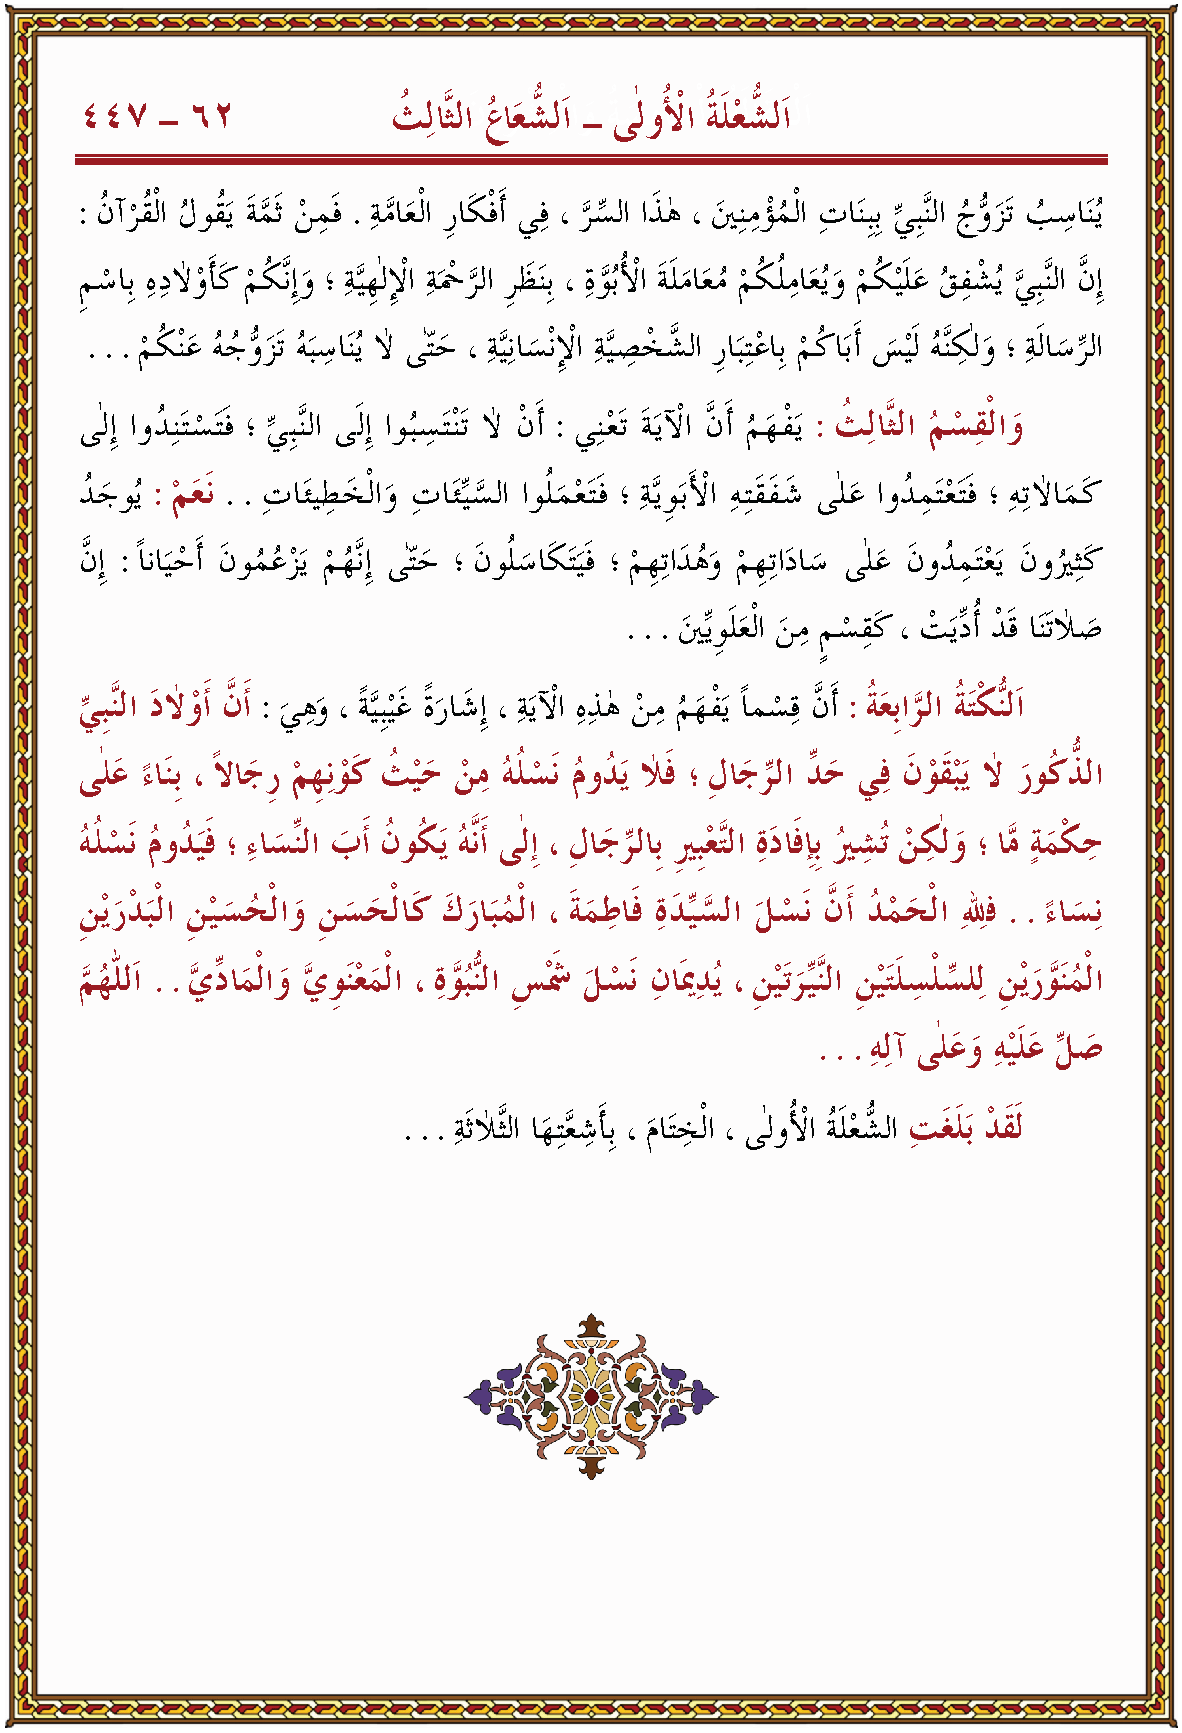 اَلشُّعْلَةُ الْأُولٰى ــ اَلشُّعَاعُ الثَّالِثُ ٦٢ ــ ٤٤٧
يُنَاسِبُ تَزَوُّجُ النَّبِيِّ بِبَنَاتِ الْمُؤْمِنِينَ ، هٰذَا السِّرَّ ، فِي أَفْكَارِ الْعَامَّةِ . فَمِنْ ثَمَّةَ يَقُولُ الْقُرْآنُ :
إِنَّ النَّبِيَّ يُشْفِقُ عَلَيْكُمْ وَيُعَامِلُكُمْ مُعَامَلَةَ الْأُبُوَّةِ ، بِنَظَرِ الرَّحْمَةِ الْإِلٰهِيَّةِ ؛ وَإِنَّكُمْ كَأَوْلاٰدِهِ بِاسْمِ
الرِّسَالَةِ ؛ وَلٰكِنَّهُ لَيْسَ أَبَاكُمْ بِاعْتِبَارِ الشَّخْصِيَّةِ الْإِنْسَانِيَّةِ ، حَتّٰى لاٰ يُنَاسِبَهُ تَزَوُّجُهُ عَنْكُمْ . . .
وَالْقِسْمُ الثَّالِثُ : يَفْهَمُ أَنَّ الْآيَةَ تَعْنِي : أَنْ لاٰ تَنْتَسِبُوا إِلَى النَّبِيِّ ؛ فَتَسْتَنِدُوا إِلٰى
كَمَالاٰتِهِ ؛ فَتَعْتَمِدُوا عَلٰى شَفَقَتِهِ الْأَبَوِيَّةِ ؛ فَتَعْمَلُوا السَّيِّئَاتِ وَالْخَطِيئَاتِ . . نَعَمْ : يُوجَدُ
كَثِيرُونَ يَعْتَمِدُونَ عَلٰى سَادَاتِهِمْ وَهُدَاتِهِمْ ؛ فَيَتَكَاسَلُونَ ؛ حَتّٰى إِنَّهُمْ يَزْعُمُونَ أَحْيَاناً : إِنَّ
صَلاٰتَنَا قَدْ أُدِّيَتْ ، كَقِسْمٍ مِنَ الْعَلَوِيِّينَ . . .
اَلنُّكْتَةُ الرَّابِعَةُ : أَنَّ قِسْماً يَفْهَمُ مِنْ هٰذِهِ الْآيَةِ ، إِشَارَةً غَيْبِيَّةً ، وَهِيَ : أَنَّ أَوْلاٰدَ النَّبِيِّ
الذُّكُورَ لاٰ يَبْقَوْنَ فِي حَدِّ الرِّجَالِ ؛ فَلاٰ يَدُومُ نَسْلُهُ مِنْ حَيْثُ كَوْنِهِمْ رِجَالاً ، بِنَاءً عَلٰى
حِكْمَةٍ مَّا ؛ وَلٰكِنْ تُشِيرُ بِإِفَادَةِ التَّعْبِيرِ بِالرِّجَالِ ، إِلٰى أَنَّهُ يَكُونُ أَبَ النِّسَاءِ ؛ فَيَدُومُ نَسْلُهُ
نِسَاءً . . فَلِلّٰهِ الْحَمْدُ أَنَّ نَسْلَ السَّيِّدَةِ فَاطِمَةَ ، الْمُبَارَكَ كَالْحَسَنِ وَالْحُسَيْنِ الْبَدْرَيْنِ
الْمُنَوَّرَيْنِ لِلسِّلْسِلَتَيْنِ النَّيِّرَتَيْنِ ، يُدِيمَانِ نَسْلَ شَمْسِ النُّبُوَّةِ ، الْمَعْنَوِيَّ وَالْمَادِّيَّ . . اَللّٰهُمَّ
صَلِّ عَلَيْهِ وَعَلٰى آلِهِ . . .
لَقَدْ بَلَغَتِ الشُّعْلَةُ الْأُولٰى ، الْخِتَامَ ، بِأَشِعَّتِهَا الثَّلاٰثَةِ . . .